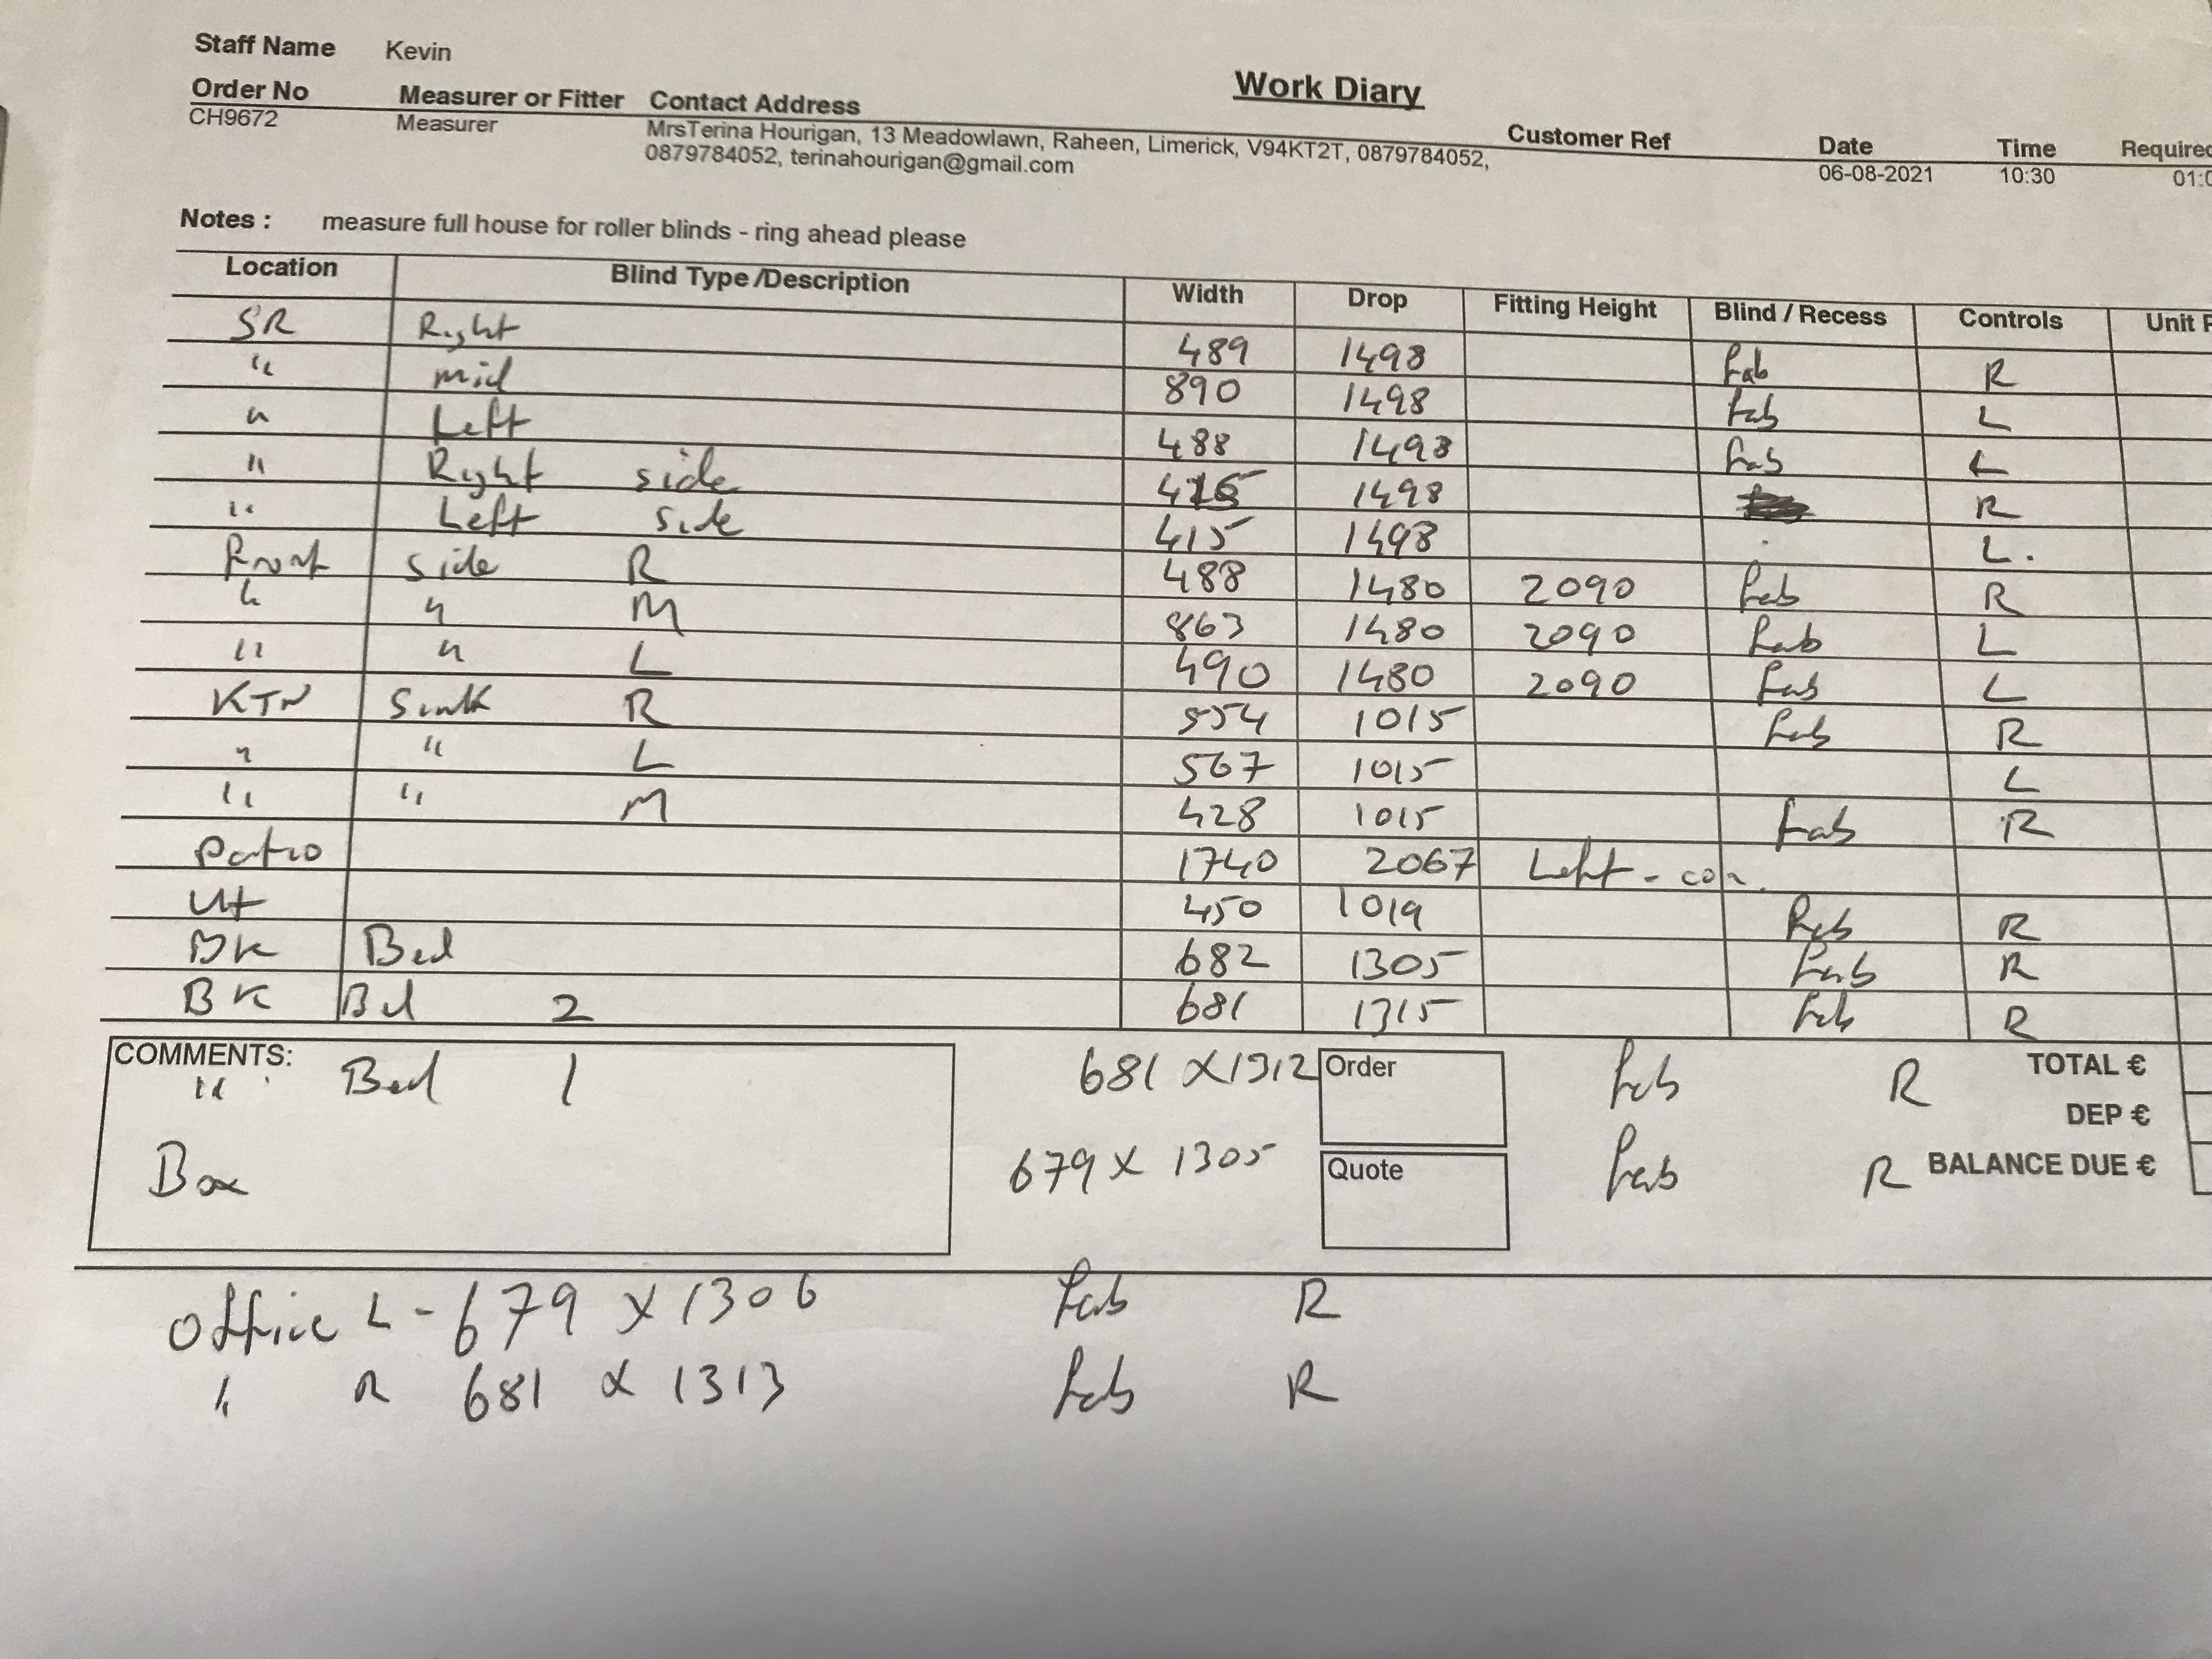 Staff Name Kevin
Work Diary
Order No Measurer or Fitter Contact Address Customer Ref Date Time Required
CH9672 Measurer MrsTerina Hourigan, 13 Meadowlawn, Raheen, Limerick, V94KT2T, 0879784052, 06-08-2021 10:30 01:0
0879784052, terinahourigan@gmail.com
Notes : measure full house for roller blinds - ring ahead please
Location Blind Type /Description Width Drop Fitting Height Blind / Recess Controls Unit P
SR Right 489 1498 Fab R
" mid 890 1498 Fab L
" Left 488 1498 Fab L
" Right side 1498 R
" Left side 415 1498 L.
Front side R 488 1480 2090 Fab R
" " M 863 1480 2090 Fab L
" " L 490 1480 2090 Fab L
KTN Sink R 554 1015 Fab R
" " L 567 1015 L
" " M 428 1015 Fab R
Patio 1740 2067 Left -
Ut 450 1019 Fab R
BK Bed 682 1305 Fab R
BK Bed 2 681 1315 Fab R
COMMENTS:
" Bed 1 681 X 1312 Order Fab R TOTAL €
DEP €
Box 679 X 1305 Quote Fab R BALANCE DUE €
Office L - 679 X 1306 Fab R
" R 681 X 1313 Fab R